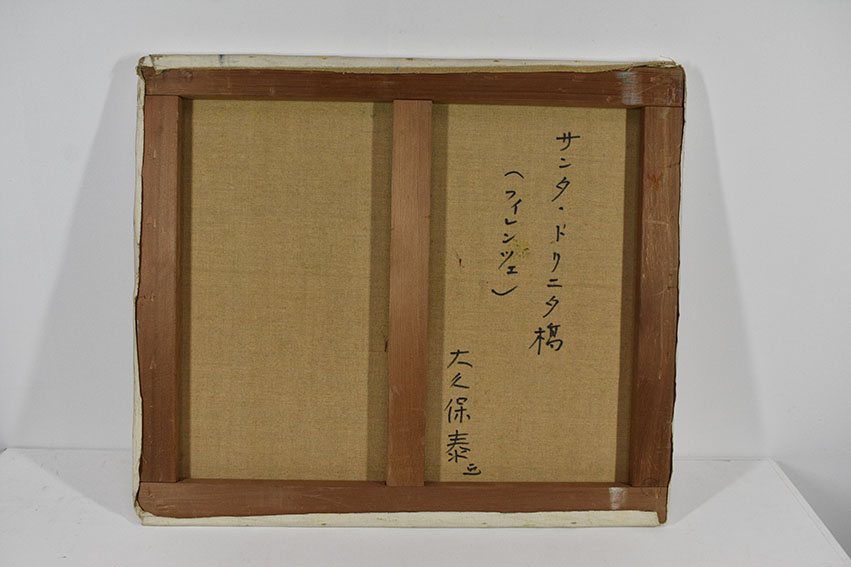 サンタ・ドリニタ橋
(フィレンツェ)
大久保泰